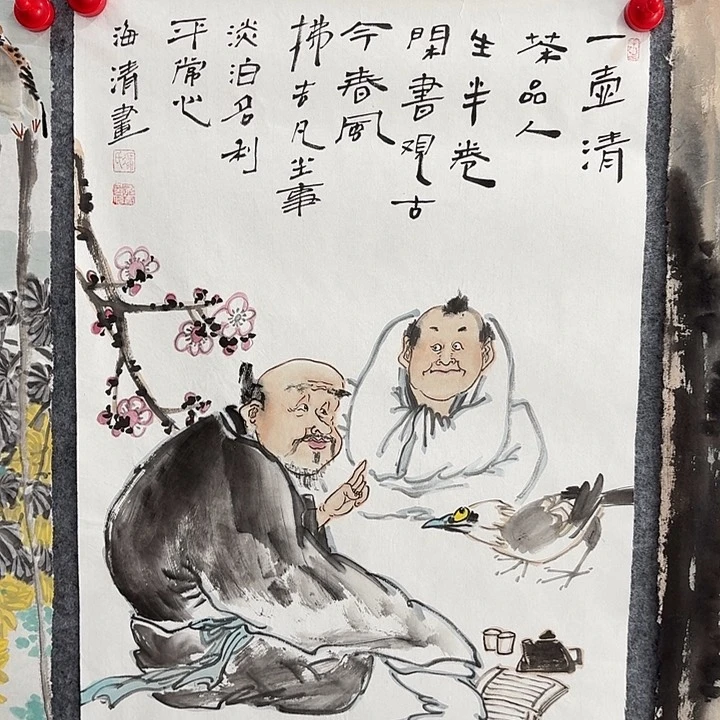 一壶清
茶品人
生半卷
閑書观古
今春風
拂去凡尘事
淡泊名利
平常心
海清畫